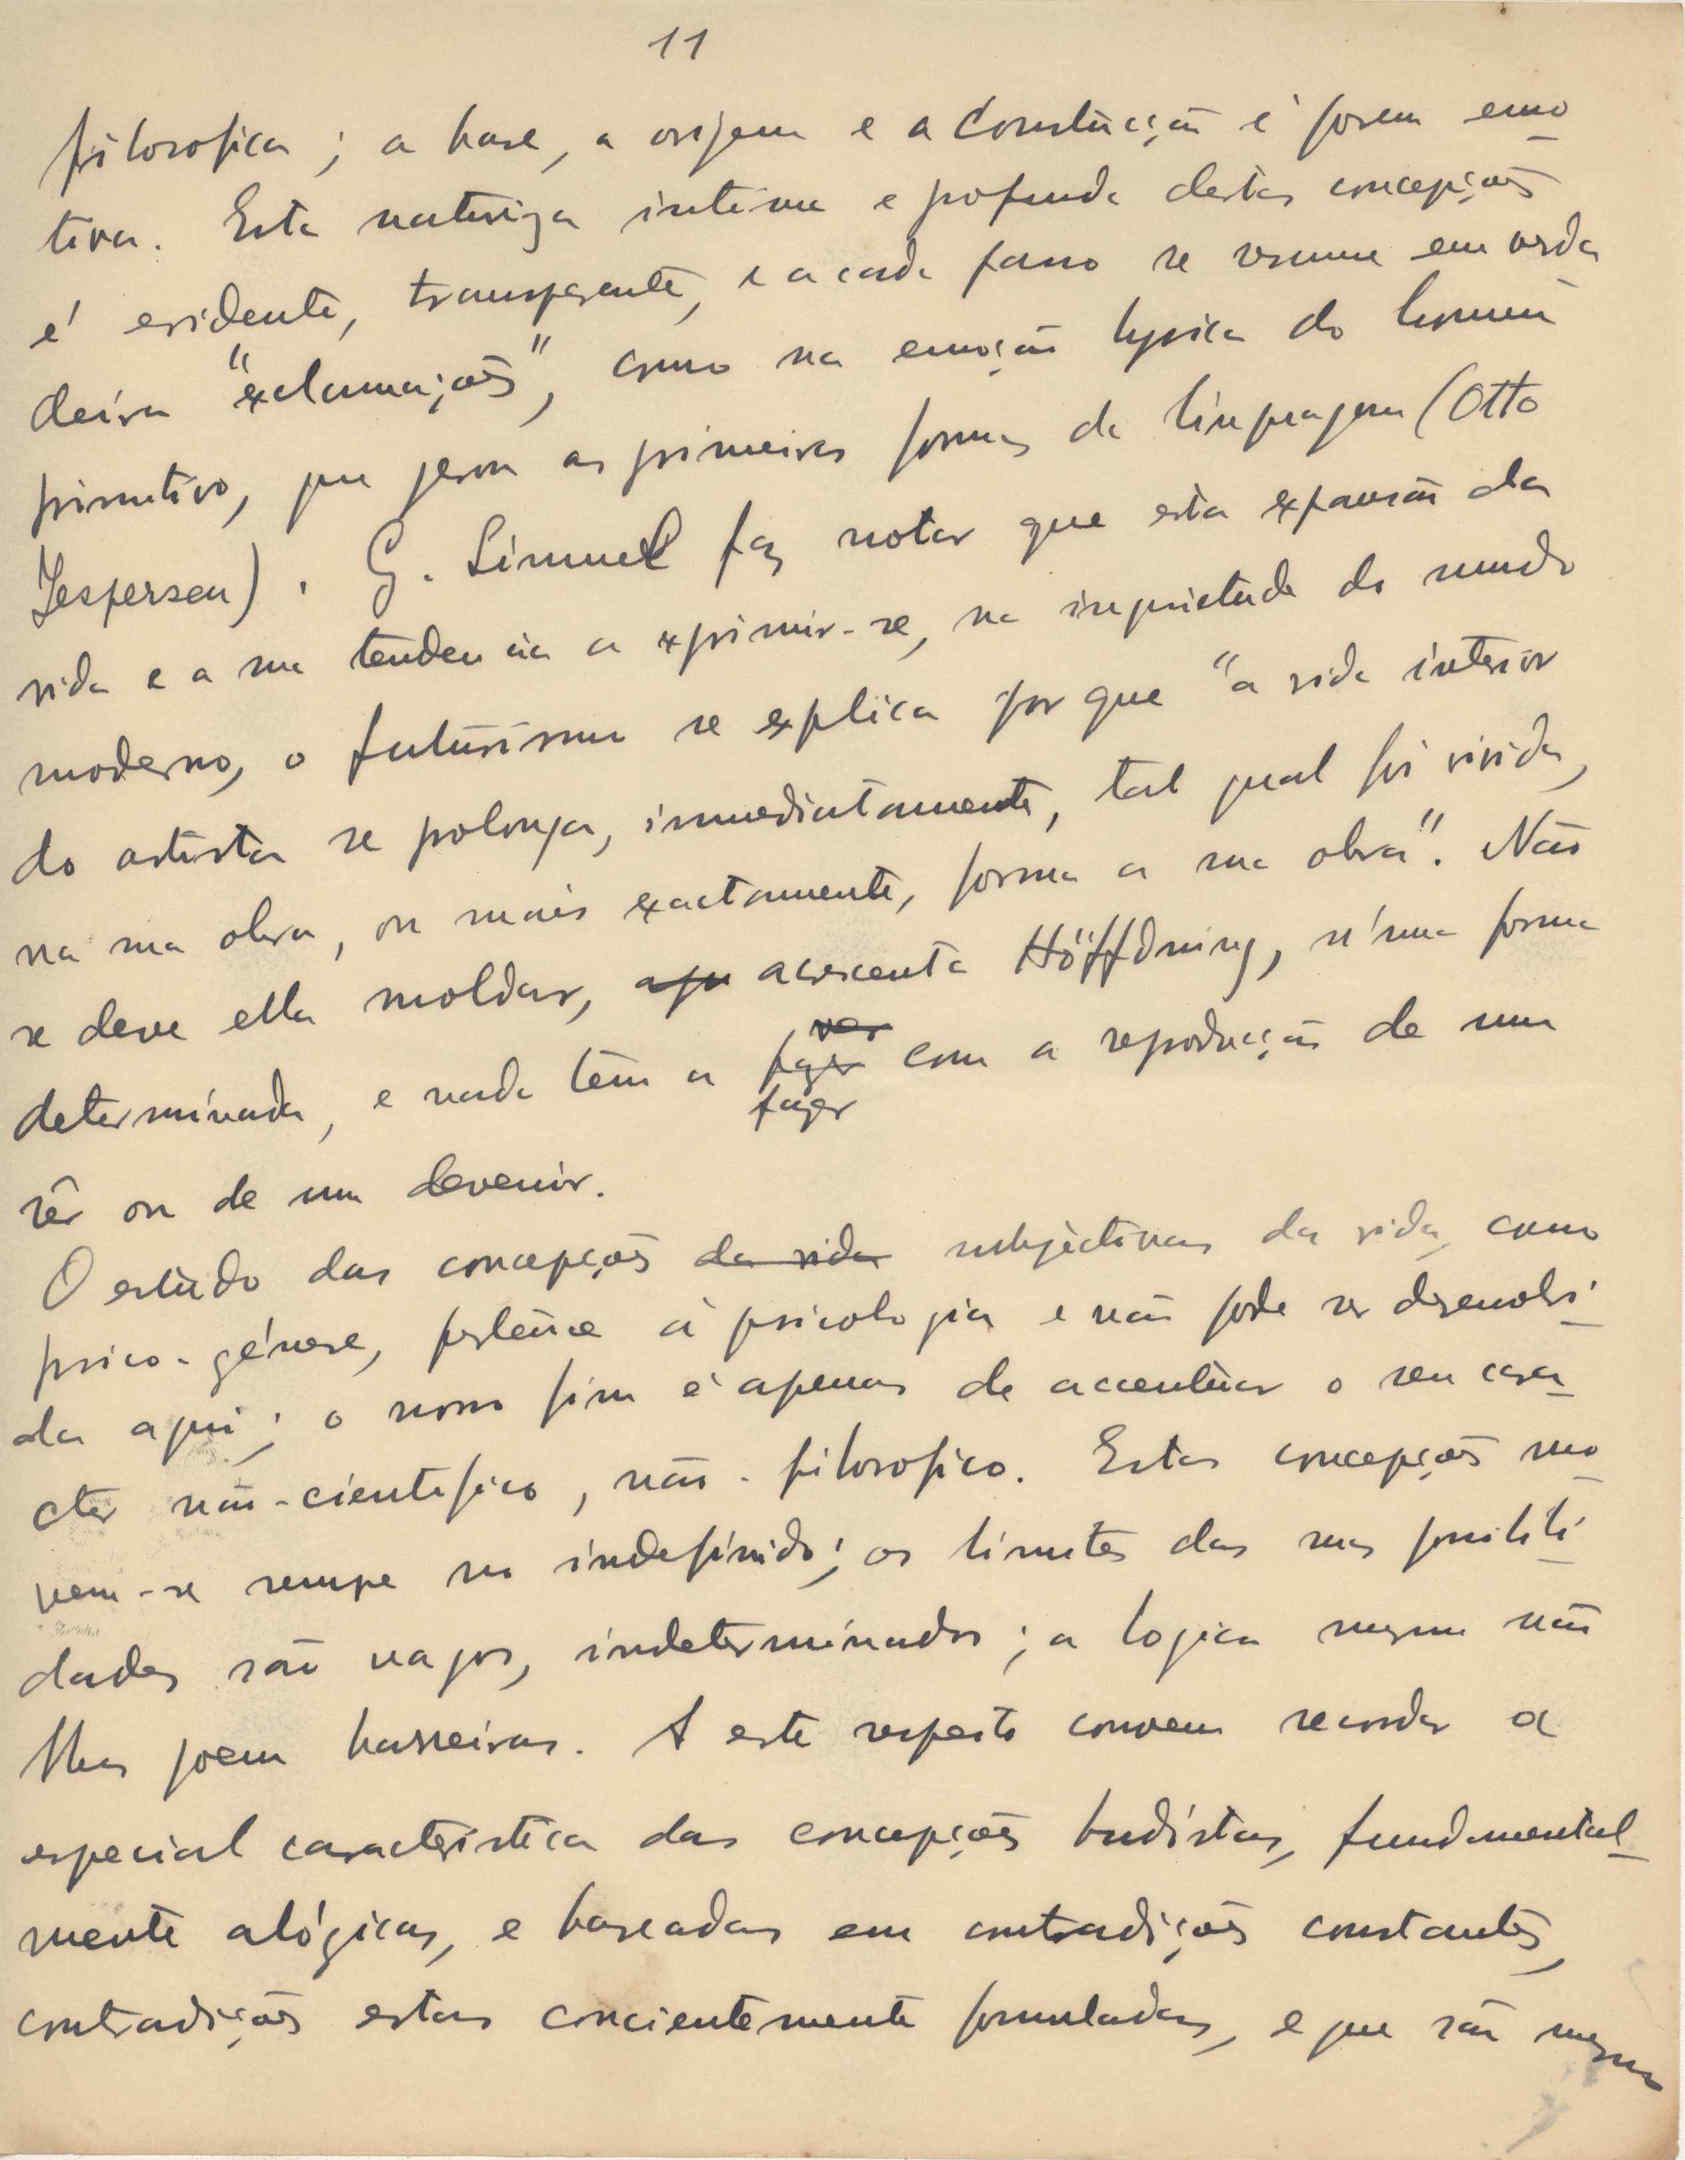 11
filosofica; a base, a origem e a construcção é porem emo
tiva. Esta naturеza intima e profunda destas concepções
é evidente, transparente, e a cada passo se resume em verda
deira "exclamações", como na emoção lyrica do homem
primitivo, que gerou as primeiras formas de linguagem (Otto
Jespersen). G. Simmel faz notar que esta expansão da
vida e a sua tendencia a exprimir-se, na inquietude do mundo
moderno, o futurismo se explica por que "a vida interior
do artista se prolonga, immediatamente, tal qual foi vivida,
na sua obra, ou mais exactamente, forma a sua obra". Não
se deve ella moldar, acrescenta Höffdning, n'uma forma
determinada, e nada têm a fazer ver
fazer com a reproducção de um
sêr ou de um devenir.
O estudo das concepções da vida subjectivas da vida, como
psico-génese, pertence á psicologia e não pode ser desenvolvi
da aqui; o nosso fim é apenas de accentuar o seu cara
cter não-cientifico, não-filosofico. Estas concepções mo
vem-se sempre no indefinido; os limites das suas possibili
dades são vagos, indeterminados; a logica mesmo não
lhes poem barreiras. A este respeito convem recordar a
especial caracteristica das concepções budistas, fundamental
mente alógicas, e baseadas em contradições constantes,
contradições estas concientemente formuladas, e que são mesmo